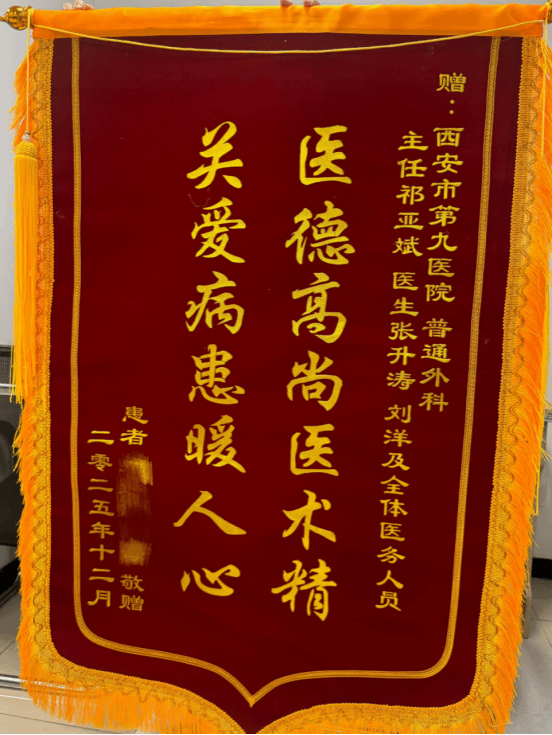 赠：西安市第九医院 普通外科
主任祁亚斌 医生张升涛 刘洋及全体医务人员
医德高尚医术精
关爱病患暖人心
患者 敬赠
二零二五年十二月